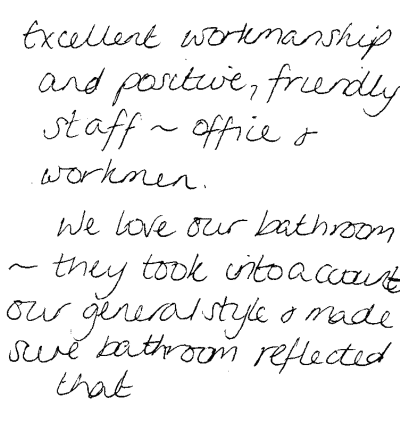 Excellent workmanship
and positive, friendly
staff ~ office &
workmen.
We love our bathroom
~ they took into account
our general style & made
sure bathroom reflected
that